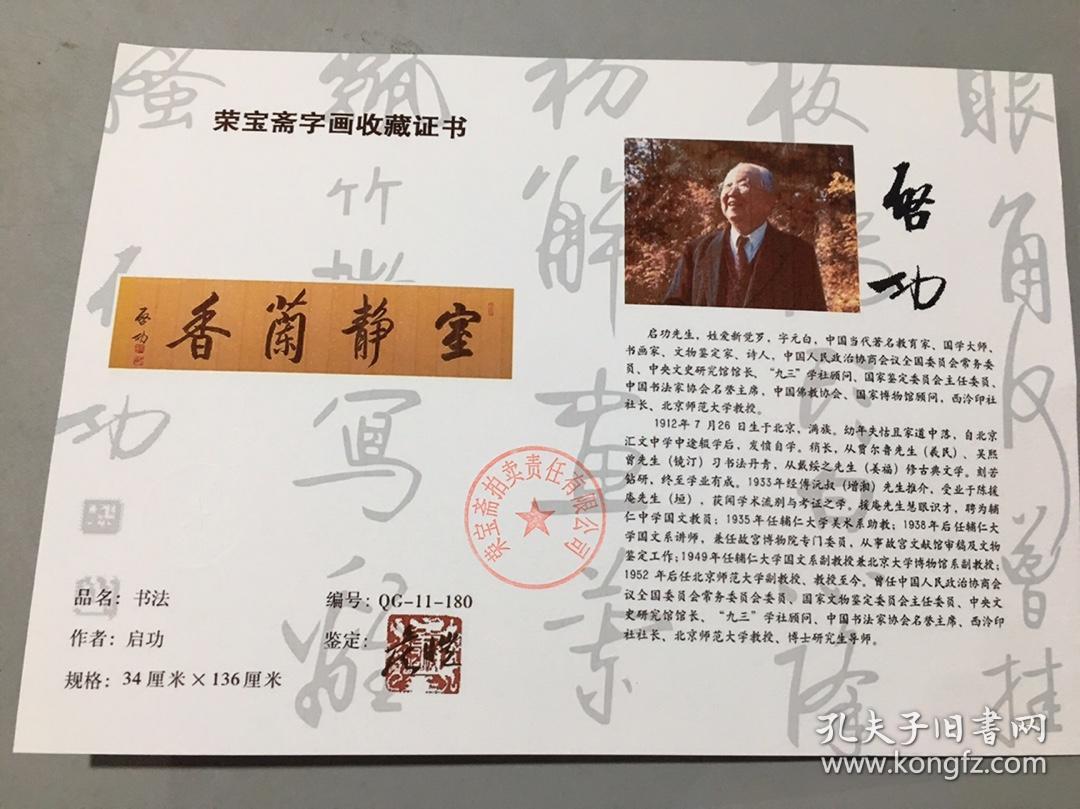 荣宝斋字画收藏证书
室静兰香
启功
荣宝斋拍卖责任有限公司
品名：书法
编号：QG-11-180
作者：启功
鉴定：
规格：34厘米×136厘米
啓功
启功先生，姓爱新觉罗，字元白，中国当代著名教育家、国学大师、
书画家、文物鉴定家、诗人，中国人民政治协商会议全国委员会常务委
员、中央文史研究馆馆长、“九三”学社顾问、国家鉴定委员会主任委员、
中国书法家协会名誉主席，中国佛教协会、国家博物馆顾问，西泠印社
社长、北京师范大学教授。
1912年7月26日生于北京，满族。幼年失怙且家道中落，自北京
汇文中学中途辍学后，发愤自学。稍长，从贾尔鲁先生（羲民）、吴熙
曾先生（镜汀）习书法丹青，从戴绥之先生（姜福）修古典文学。刻苦
钻研，终至学业有成。1933年经傅沅叔（增湘）先生推介，受业于陈援
庵先生（垣），获闻学术流别与考证之学。援庵先生慧眼识才，聘为辅
仁中学国文教员；1935年任辅仁大学美术系助教；1938年后任辅仁大
学国文系讲师，兼任故宫博物院专门委员，从事故宫文献馆审稿及文物
鉴定工作；1949年任辅仁大学国文系副教授兼北京大学博物馆系副教授；
1952年后任北京师范大学副教授、教授至今。曾任中国人民政治协商会
议全国委员会常务委员会委员、国家文物鉴定委员会主任委员、中央文
史研究馆馆长、“九三”学社顾问、中国书法家协会名誉主席、西泠印
社社长、北京师范大学教授、博士研究生导师。
孔夫子旧书网
www.kongfz.com